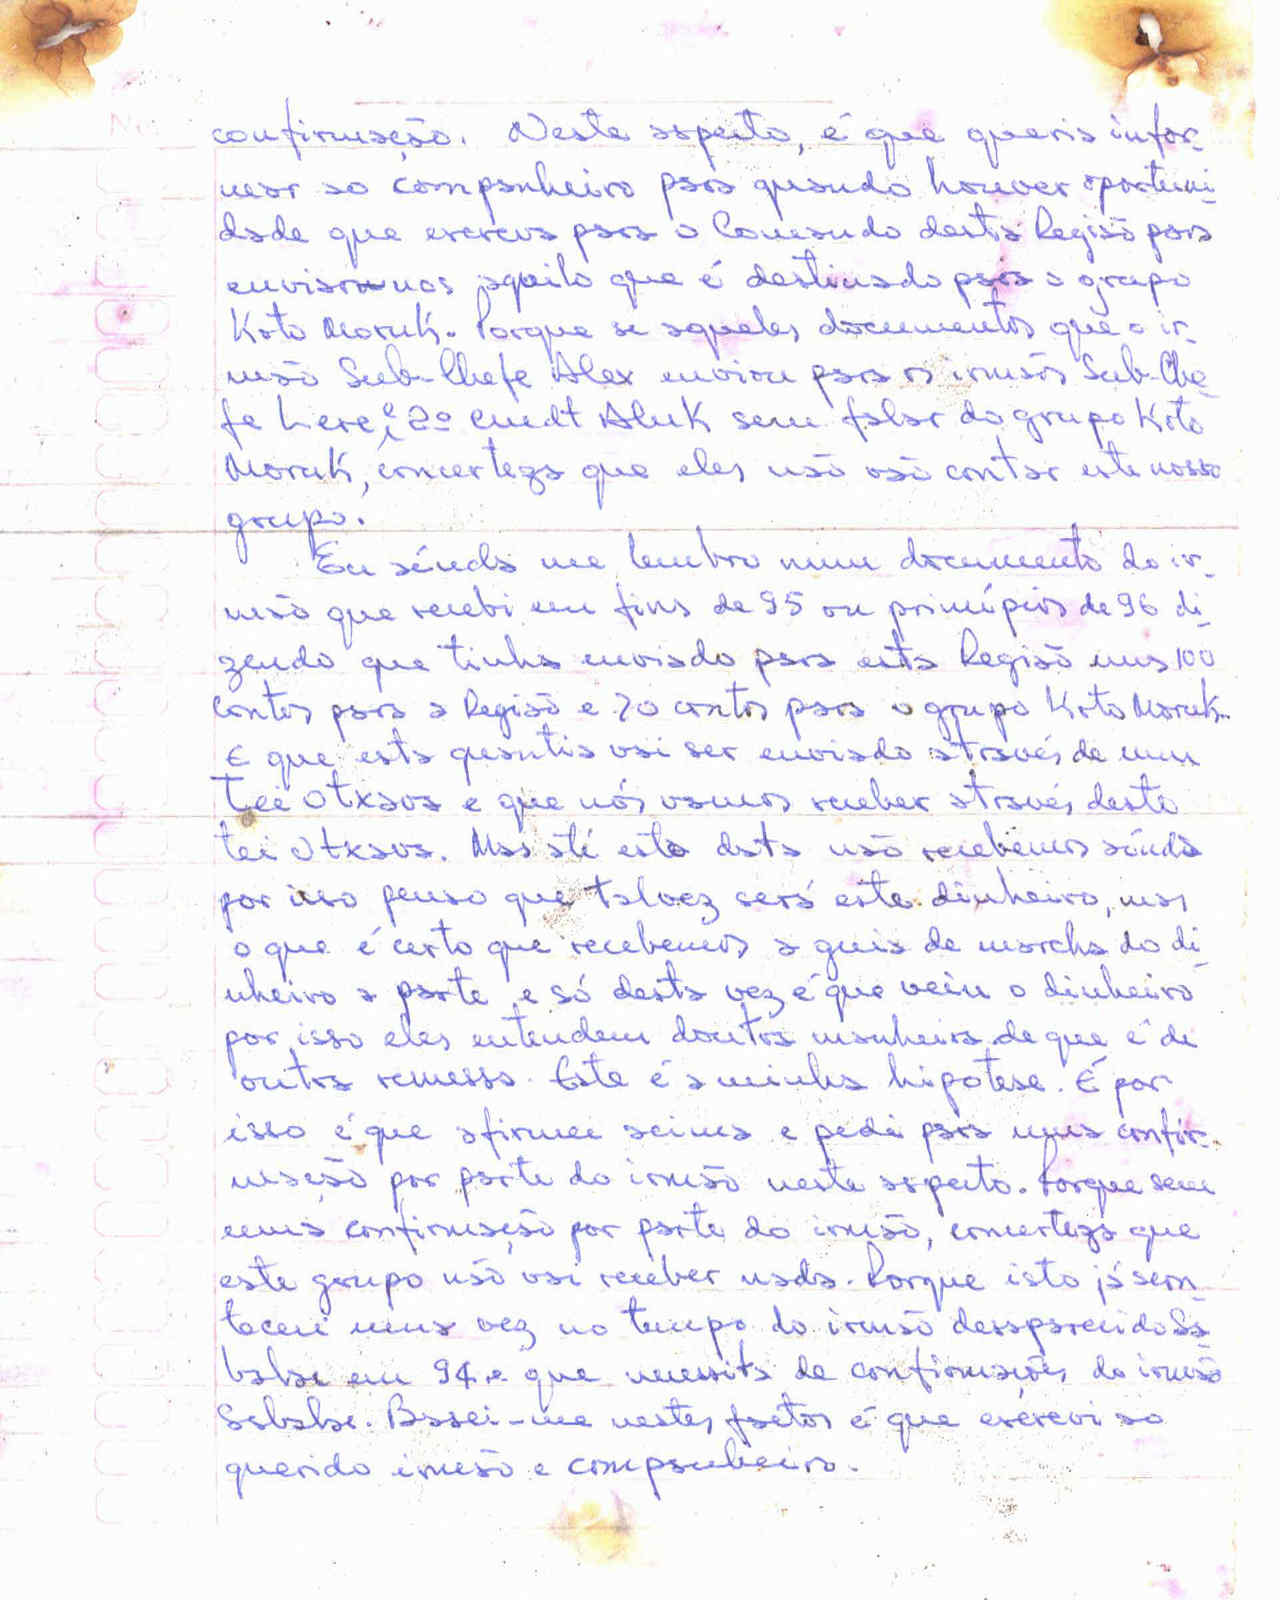 confirmação. Neste aspeito, é que queria infor-
mar ao companheiro para quando houver oportuni-
dade que escreva para o Comando desta Região para
enviar-nos aquilo que é destinado para o grupo
Koto Moruk. Porque se aqueles documentos que o ir-
mão Sub-Chefe Alex enviou para os irmãos Sub-Che-
fe Lere, e 2º Cmdt Aluk sem falar do grupo Koto
Moruk, concerteza que eles não vão contar este nosso
grupo.
Eu aínda me lembro num documento do ir-
mão que recebi em fins de 95 ou princípios de 96 di-
zendo que tinha enviado para esta Região uns 100
contos para a Região e 20 contos para o grupo Koto Moruk.
E que esta quantia vai ser enviado através de um
tei Otxava e que nós vamos receber através deste
tei Otxava. Mas até esta data não recebemos aínda
por isso penso que talvez será este dinheiro, mas
o que é certo que recebemos a guia de marcha do di-
nheiro a parte e só desta vez é que veiu o dinheiro
por isso eles entendem doutra manheira de que é de
outra remessa. Este é a minha hipotese. É por
isso é que afirmei acima e pedi para uma confir-
mação por parte do irmão neste aspeito. Porque sem
uma confirmação por parte do irmão, concerteza que
este grupo não vai receber nada. Porque isto já acon-
teceu uma vez no tempo do irmão desaparecido Sa-
balae em 94 e que necessita de confirmações do irmão
Sabalae. Basei-me nestes factos é que escrevi ao
querido irmão e companheiro.